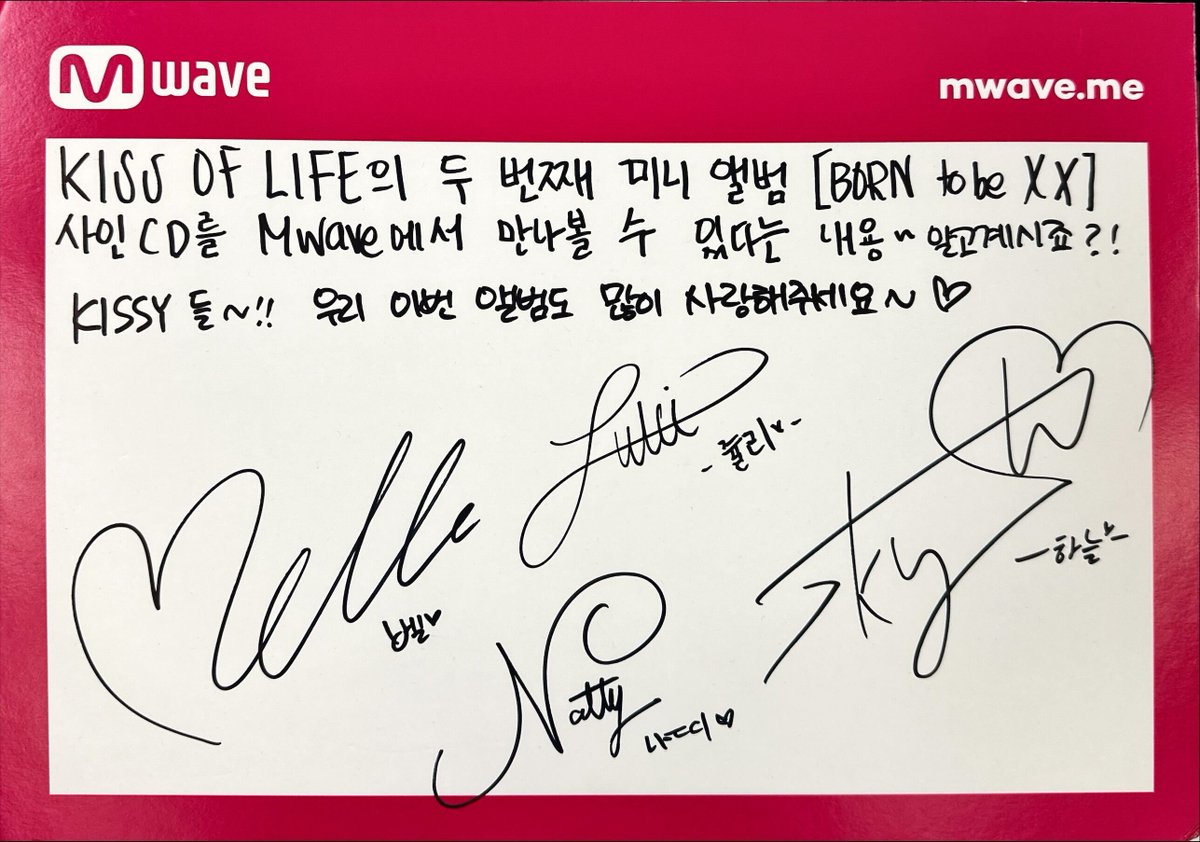 M wave
mwave.me
KISS OF LIFE의 두 번째 미니 앨범 [BORN to be XX]
사인CD를 Mwave에서 만나볼 수 있다는 내용~ 알고계시죠?!
KISSY 들~!! 우리 이번 앨범도 많이 사랑해주세요~ ♡
Julii
-쥴리♥-
Belle
벨♥
Sky
-하늘-
Natty
나띠♡